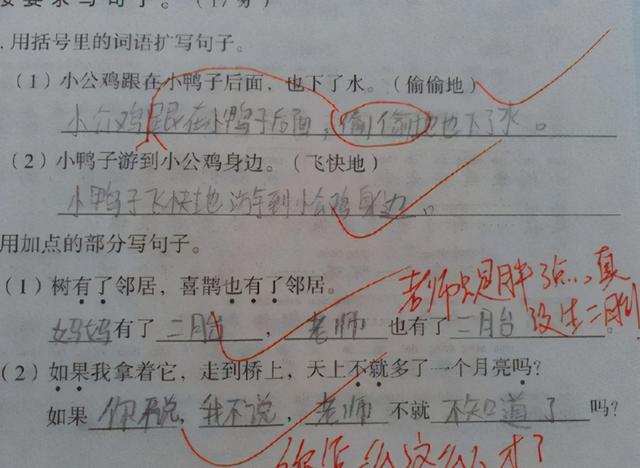 要求写句子。（17分）
.用括号里的词语扩写句子。
（1）小公鸡跟在小鸭子后面，也下了水。（偷偷地）
小公鸡跟在小鸭子后面，偷偷地也下了水。
（2）小鸭子游到小公鸡身边。（飞快地）
小鸭子飞快地游到小公鸡身边。
用加点的部分写句子。
（1）树有了邻居，喜鹊也有了邻居。
老师只是胖了点，真
没生二胎
妈妈有了二胎，老师也有了二胎。
（2）如果我拿着它，走到桥上，天上不就多了一个月亮吗?
如果你不说，我不说，老师不就不知道了吗?
你怎么这么有才了